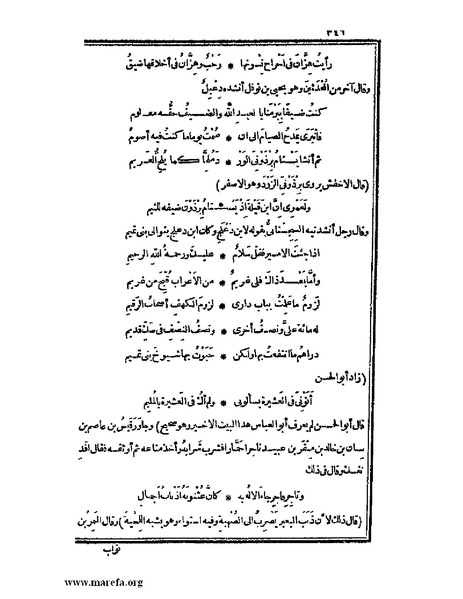 ٣٤٦
رأيت هزان فى أحراح نسوتها * رحب وهزان فى أخلاقها ضيق
وقال آخر من المحدثين وهو يحيى بن نوفل أنشده دعبل
كنت ضيفا ببرمنايا لعبد الله والضيف حقه معلوم
فانبرى يمدح الصيام الى ان * صمت يوما ما كنت فيه أصوم
ثم أنشا يستام برذونى الورد * كما يلح الغريم
(قال الاخفش يروى برذونى الزرد وهو الاصفر)
ولعمرى ان ابن قيلة اذ يستام برذون ضيفه للئيم
وقال رجل أنشدنيه السجستانى يقوله لابن دعلج وكان ابن دعلج يتولى بنى تميم
اذا جئت الامير فقل سلام * عليك ورحمة الله الرحيم
وأما بعد ذاك فلى غريم * من الأعراب قبح من غريم
لزوم ما علمت بباب دارى * لزوم الكهف أصحاب الرقيم
له مائة على ونصف أخرى * ونصف النصف فى صك قديم
دراهم ما انتفعت بها ولكن * حبوت بها شيوخ بنى تميم
(زاد أبو الحسن
أتونى فى العشيرة يسألونى * ولم أك فى العشيرة بالمليم
قال أبو الحسن لم يعرف أبو العباس هذا البيت الاخير وهو صحيح) وجاور قيس بن عاصم بن
سنان بن خالد بن منقر بن عبيد تاجرا خمارا فشرب شرابه وأخذ متاعه ثم أوثقه فقال افد
نفسك وقال فى ذلك
وتاجر فاجر جاء الاله به * كأن عثنونه أذناب أجمال
(قال ذلك لأن ذنب البعير يضرب الى الصهبة وفيه استواء وهو يشبه اللحية) وقال النمر بن
تولب
www.marefa.org